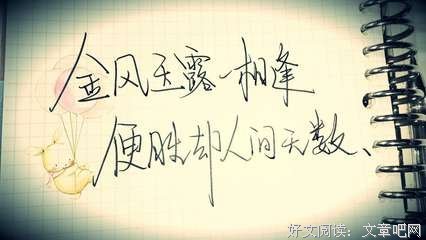 金风玉露一相逢
便胜却人间无数、
好文阅读：文章吧网